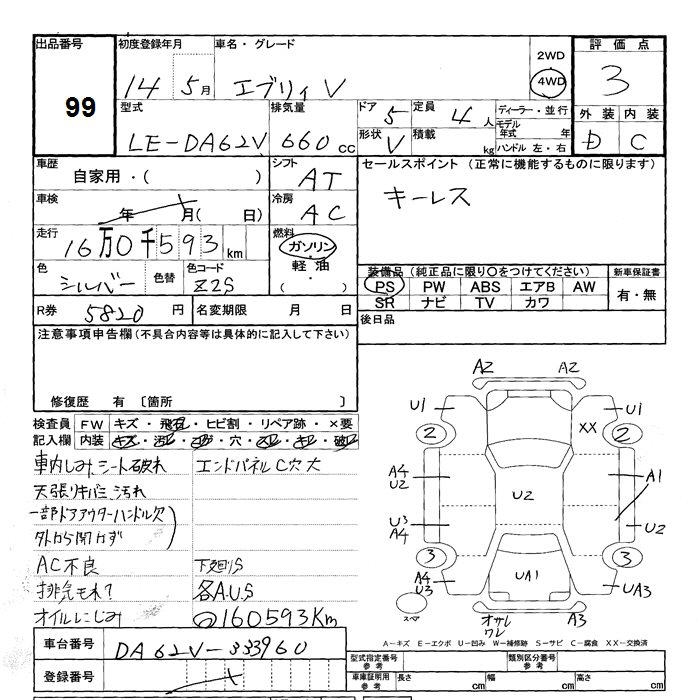 出品番号 初度登録年月 車名・グレード 評価点
99 14 5月 エブリィ V 2WD 4WD 3
型式 排気量 ドア 5 定員 4人 ディーラー・並行 外装 内装
LE-DA62V 660cc 形状 V 積載 kg モデル年式 年 ハンドル 左・右 D C
車歴 シフト セールスポイント (正常に機能するものに限ります)
自家用・( ) AT キーレス
車検 年 月( 日) 冷房 AC
走行 16万0千593km 燃料 ガソリン・軽油・( )
色 シルバー 色替 色コード Z2S 装備品(純正品に限り○をつけてください) 新車保証書
PS PW ABS エアB AW 有・無
SR ナビ TV カワ
R券 5820円 名変期限 月 日 後日品
注意事項申告欄(不具合内容等は具体的に記入して下さい)
修復歴 有 〔箇所 〕
検査員 FW キズ・飛石・ヒビ割・リペア跡・×要
記入欄 内装 キズ・汚レ・コゲ・穴・スレ・キレ・破レ
車内しみ,シート破れ エンドパネルC穴大
天張りキバミ汚れ
一部ドアアウターハンドル欠
外から開かず
AC不良 下廻りS
排気もれ? 各A.U.S
オイルにじみ 160593Km
車台番号 DA62V-333960
登録番号
A2 A2
U1 U1
2 XX 2
A4 U2 U2 A1
U3 A4 U2
3 3
A4 U3 UA1 UA3
スペア オサレ ワレ A3
A-キズ E-エクボ U-凹み W-補修跡 S-サビ C-腐食 XX-交換済
型式指定番号 参考 類別区分番号 参考
車庫証明用 参考 長さ cm 幅 cm 高さ cm